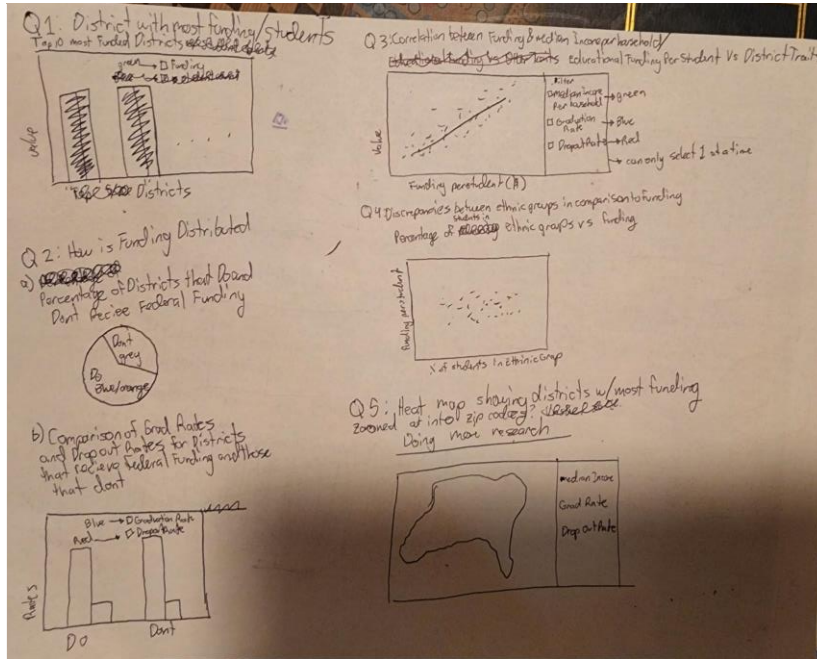 Q1: District with most funding/students
Top 10 most Funded Districts
green → □ Funding
Value
Districts
Q2: How is Funding Distributed
a)
Percentage of Districts that Do and
Dont Recieve Federal Funding
Dont
grey
Do
Blue/orange
b) Comparison of Grad Rates
and Dropout Rates for Districts
that recieve Federal Funding and those
that dont
Blue → □ Graduation Rate
Red → □ Dropout Rate
Rates
DO
Dont
Q3: Correlation between Funding & median Income per household/
Educational Funding Per Student Vs District Traits
Filter
□ Median Income
Per household → green
□ Graduation
Rate → Blue
□ Dropout Rate → Red
→ can only select 1 at a time
Value
Funding per student ($)
Q4 Discrepancies between ethnic groups in comparison to funding
students in
Percentage of ethnic groups vs funding
Funding per student
% of students in Ethinic Group
Q5: Heat map showing districts w/most funding
zoomed at into zip codes?
Doing more research
median Income
Grad Rate
Drop Out Rate